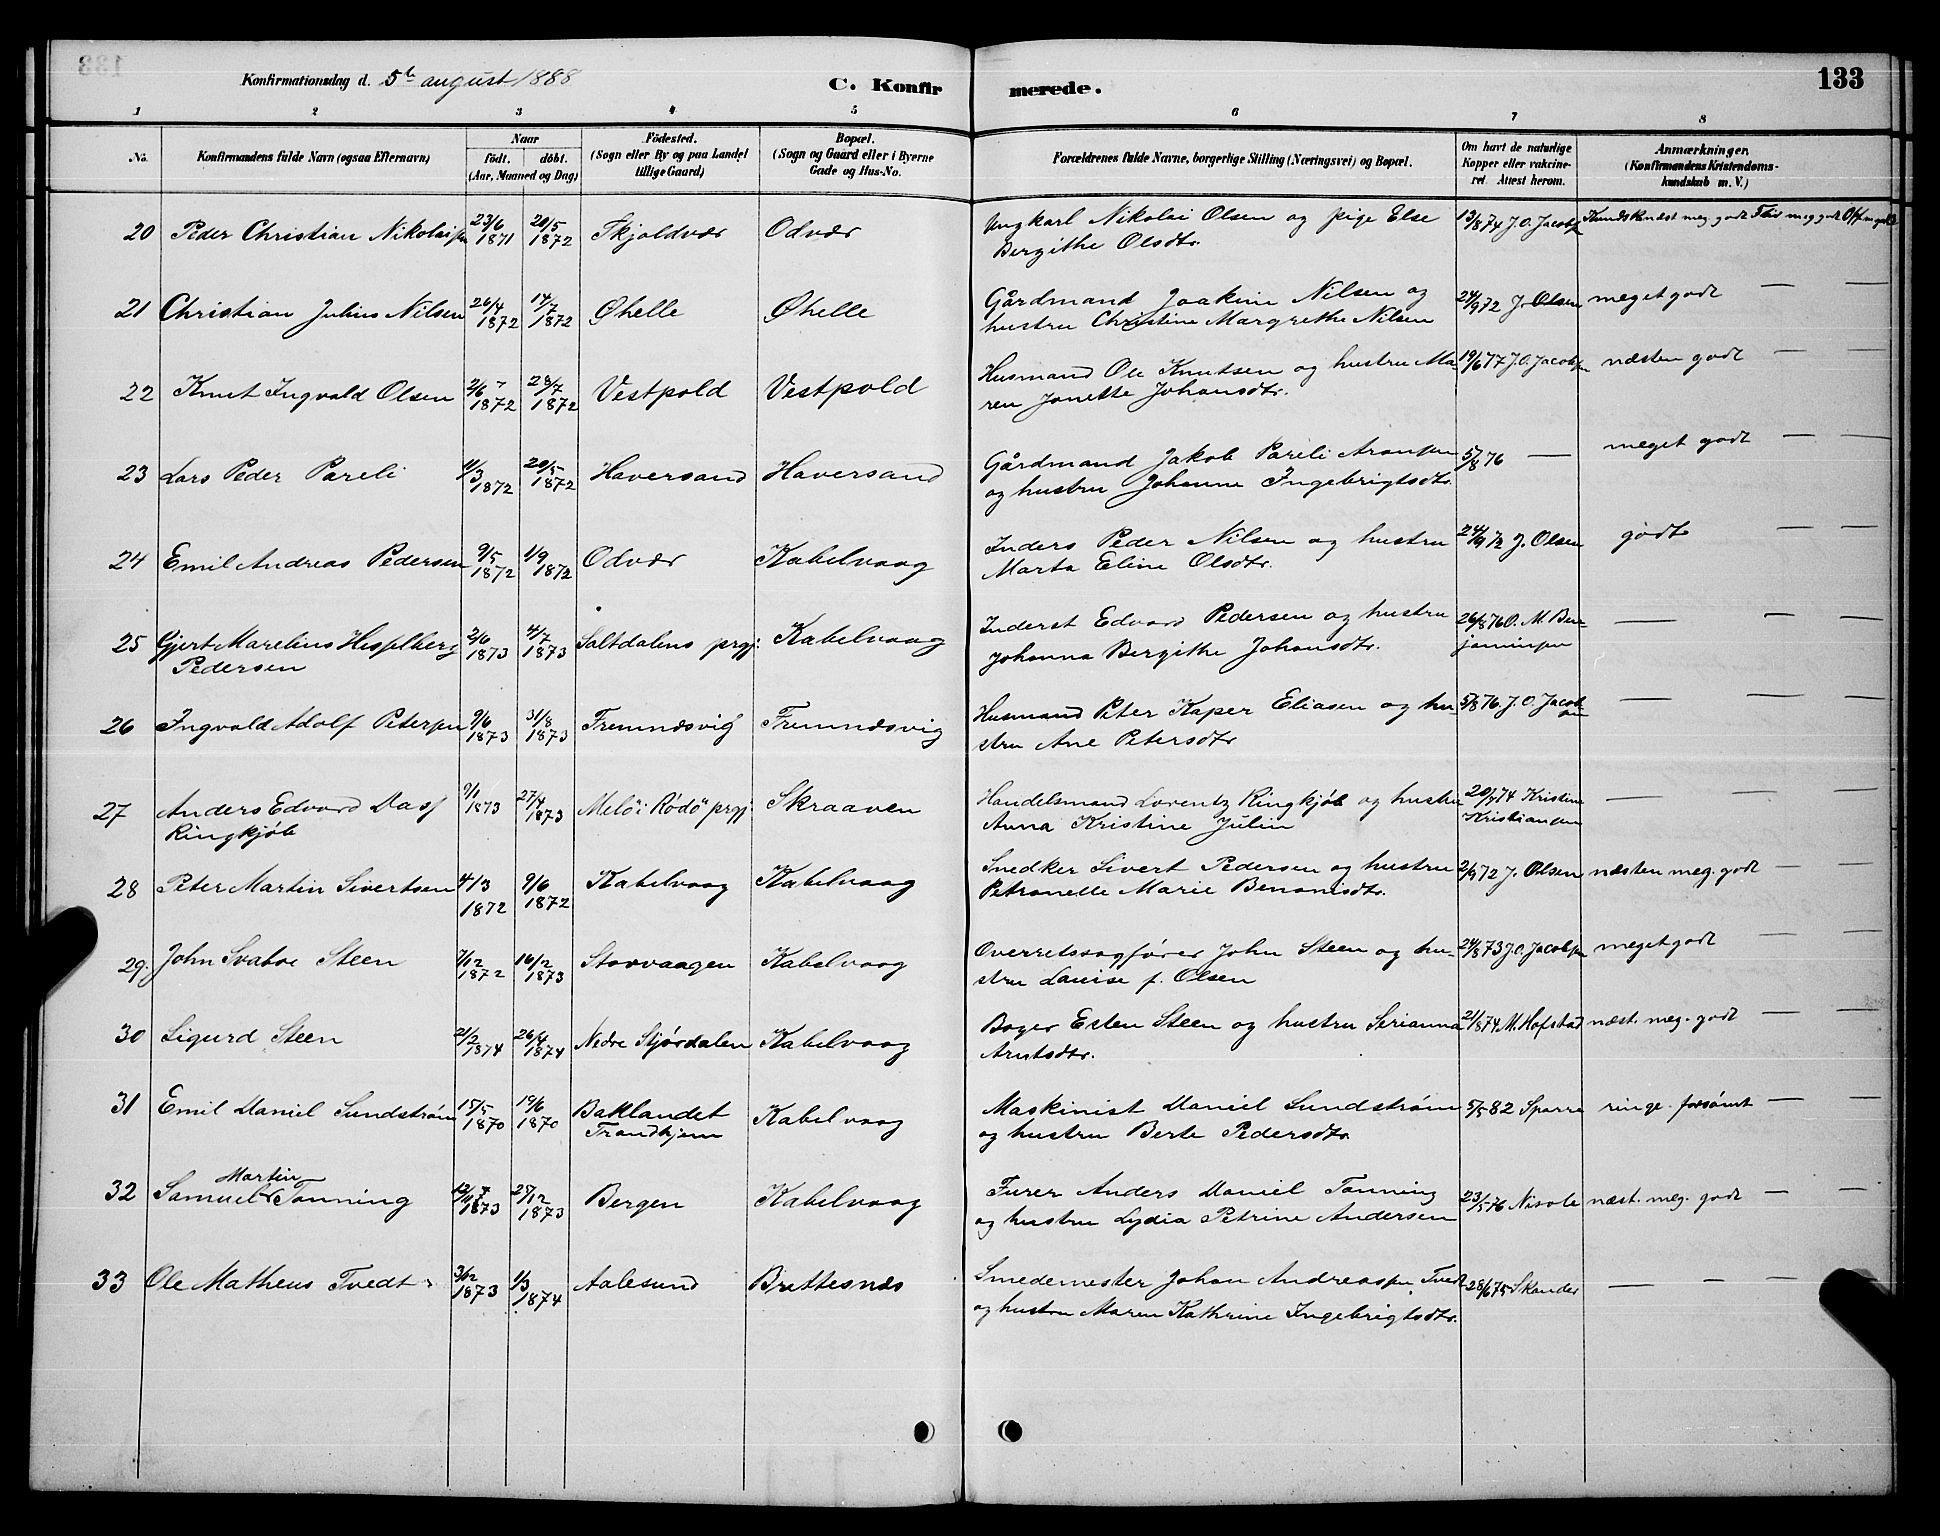 133
Konfirmationsdag d. 5te august 1888
C. Konfirmerede.
133
1 2 3 4 5 6 7 8
No. Konfirmandens fulde Navn (ogsaa Efternavn) Naar födt. döbt. (Aar, Maaned og Dag) Födested. (Sogn eller By og paa Landet tillige Gaard) Bopæl. (Sogn og Gaard eller i Byerne Gade og Hus-No. Forældrenes fulde Navne, borgerlige Stilling (Næringsvei) og Bopæl. Om havt de naturlige Kopper eller vakcineret. Attest herom. Anmærkninger. (Konfirmandens Kristendomskundskab m. V.)
20 Peder Christian Nikolaisen 23/6 1871 20/5 1872 Skjoldvær Odvær Ungkarl Nikolai Olsen og pige Else 13/8 74 J. O. Jacobsen Kundsk næst meg. godt Flid meg godt
Bergithe Olsdtr.
21 Christian Julius Nilsen 26/4 1872 14/7 1872 Øhelle Øhelle Gårdmand Joakim Nilsen og 24/9 72 J. Olsen meget godt — —
hustru Christine Margrethe Nilsen
22 Knut Ingvald Olsen 2/6 1872 28/7 1872 Vestpold Vestpold Husmand Ole Knutsen og hustru Ma 19/6 77 J. O. Jacobsen næsten godt — —
ren Jonette Johansdtr.
23 Lars Peder Pareli 11/3 1872 20/5 1872 Haversand Haversand Gårdmand Jakob Pareli Aronsen 5/8 76 — meget godt — —
og hustru Johanne Ingebrigtsdtr.
24 Emil Andreas Pedersen 9/5 1872 1/9 1872 Odvær Kabelvaag Inders Peder Nilsen og hustru 24/9 72 J. Olsen godt — —
Marta Eline Olsdtr.
25 Gjert Marelius Hesselberg 2/6 1873 4/7 1873 Saltdalens prgj. Kabelvaag Inderst Edvard Pedersen og hustru 26/8 76 O. M Ben- — — —
Pedersen Johanna Bergithe Johansdtr. jaminsen
26 Ingvald Adolf Petersen 9/6 1873 31/8 1873 Fremnæsvig Fremnæsvig Husmand Peter Kaper Eliasen og hu- 5/8 76. J. O. Jacobsen — — —
stru Ane Petersdtr
27 Anders Edvard Dass 9/1 1873 27/4 1873 Melö i Rödö prgj Skraaven Handelsmand Lorentz Ringkjöb og hustru Kristine — — —
Ringkjöb Anna Kristine Julin Kristiansen
28 Peter Martin Sivertsen 4/3 1872 9/6 1872 Kabelvaag Kabelvaag Snedker Sivert Pedersen og hustru 2/9 72 J. Olsen næsten meg. godt — —
Petronelle Marie Benonisdtr.
29. John Svaboe Steen 7/12 1872 16/2 1873 Storvaagen Kabelvaag Overretssagförer John Steen og hu- 24/8 73 J. O. Jacobsen meget godt — —
stru Louise f. Olsen
30 Sigurd Steen 21/2 1874 26/4 1874 Nedre Stjördalen Kabelvaag Bager Esten Steen og hustru Serianna 21/8 74 M. Hofstad næst. meg. godt — —
Arntsdtr.
31 Emil Daniel Sundström 15/5 1870 19/6 1870 Baklandet Kabelvaag Maskinist Daniel Sundström 5/5 82 Sparre ringe. forsömt — —
Trondhjem og hustru Berte Pedersdtr.
32 Samuel Martin Tonning 1873 25/12 1873 Bergen Kabelvaag Furer Anders Daniel Tonning 23/5 76 næst. meg. godt — —
og hustru Lydia Petrine Andersen
33 Ole Matheus Tvedt 3/12 1873 1/3 1874 Aalesund Brettesnæs Smedemester Johan Andreassen Tvedt 28/6 75 — — —
og hustru Maren Kathrine Ingebrigtsdtr.